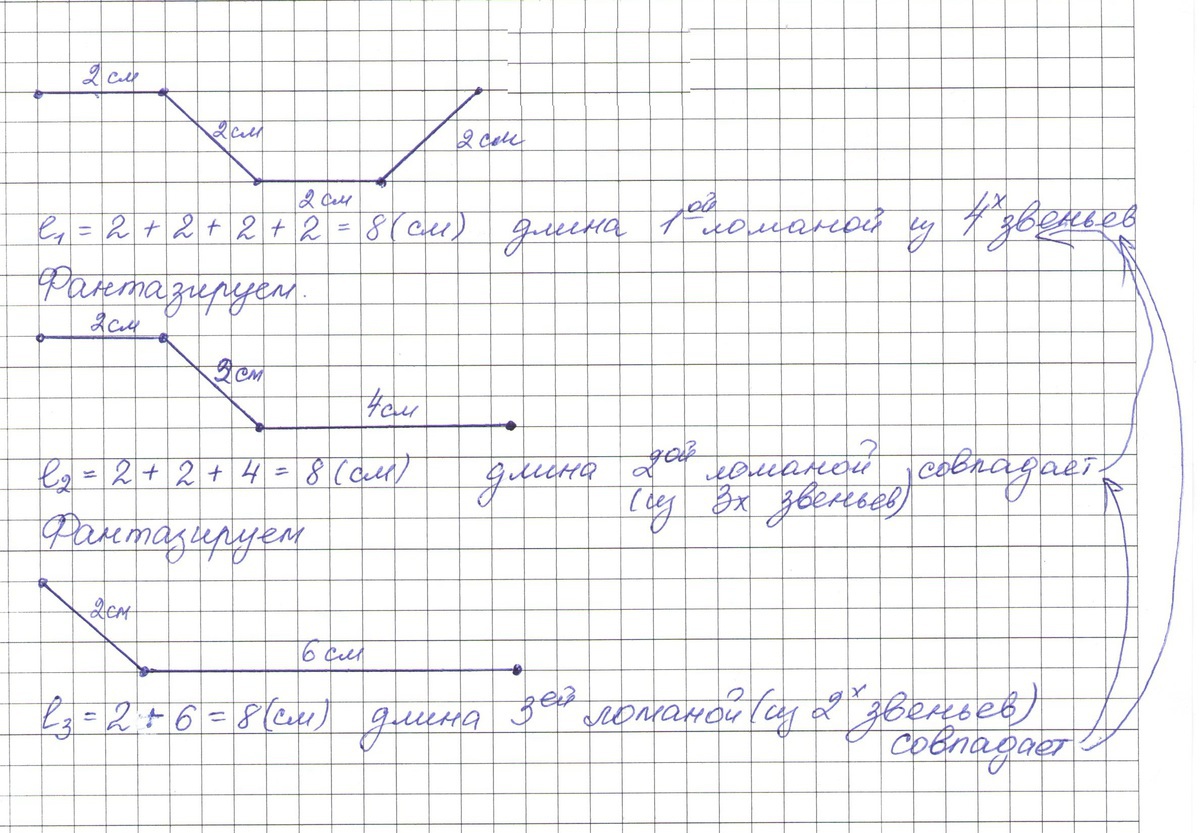 2 см
2 см
2 см
2 см
l₁ = 2 + 2 + 2 + 2 = 8 (см) длина 1ой ломаной из 4х звеньев
Фантазируем.
2 см
2 см
4 см
l₂ = 2 + 2 + 4 = 8 (см) длина 2ой ломаной совпадает
(из 3х звеньев)
Фантазируем
2 см
6 см
l₃ = 2 + 6 = 8 (см) длина 3ей ломаной (из 2х звеньев)
совпадает